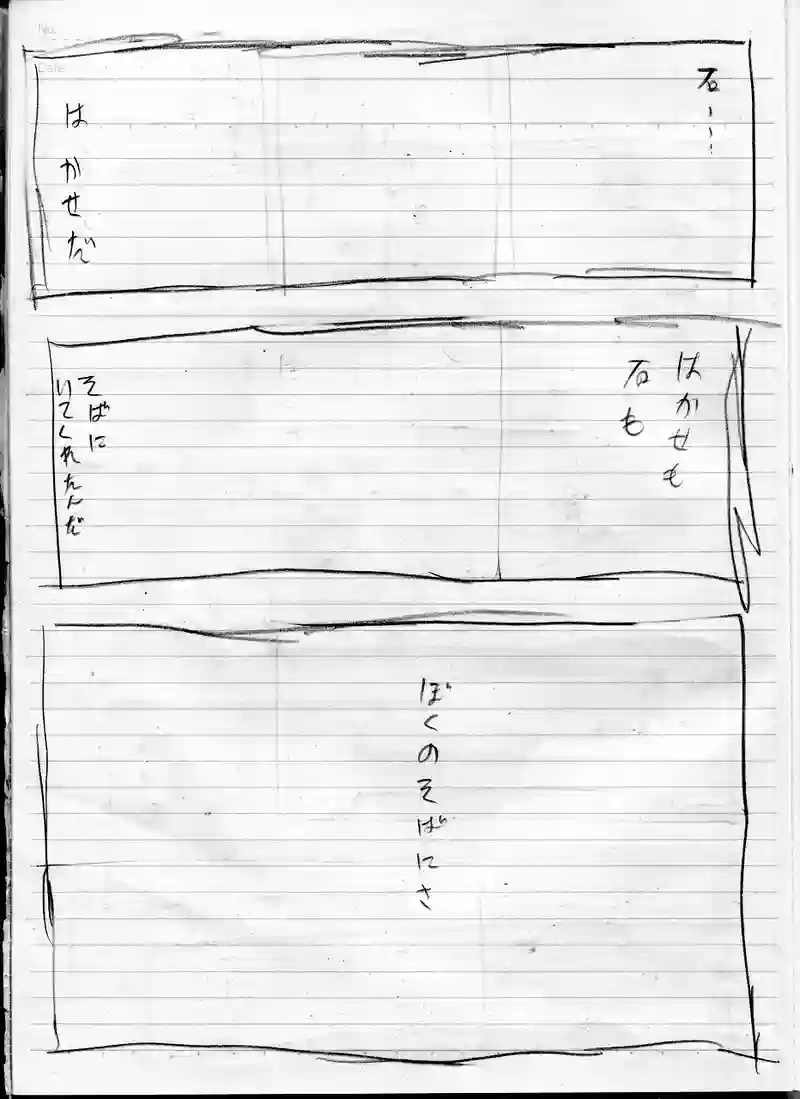 No.
Date
石---
はかせだ
はかせも
石も
そばに
いてくれたんだ
ぼくのそばにさ